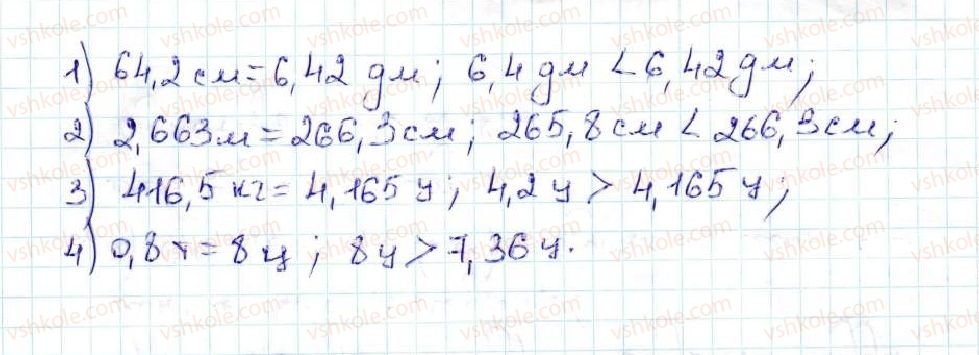 1) 64,2 см = 6,42 дм; 6,4 дм < 6,42 дм;
2) 2,663 м = 266,3 см; 265,8 см < 266,3 см;
3) 416,5 кг = 4,165 ц; 4,2 ц > 4,165 ц;
4) 0,8 т = 8 ц; 8 ц > 7,36 ц.
vshkole.com